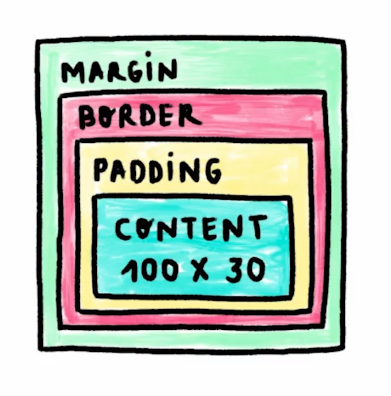 MARGiN
BORDER
PADDiNG
CONTENT
100 X 30